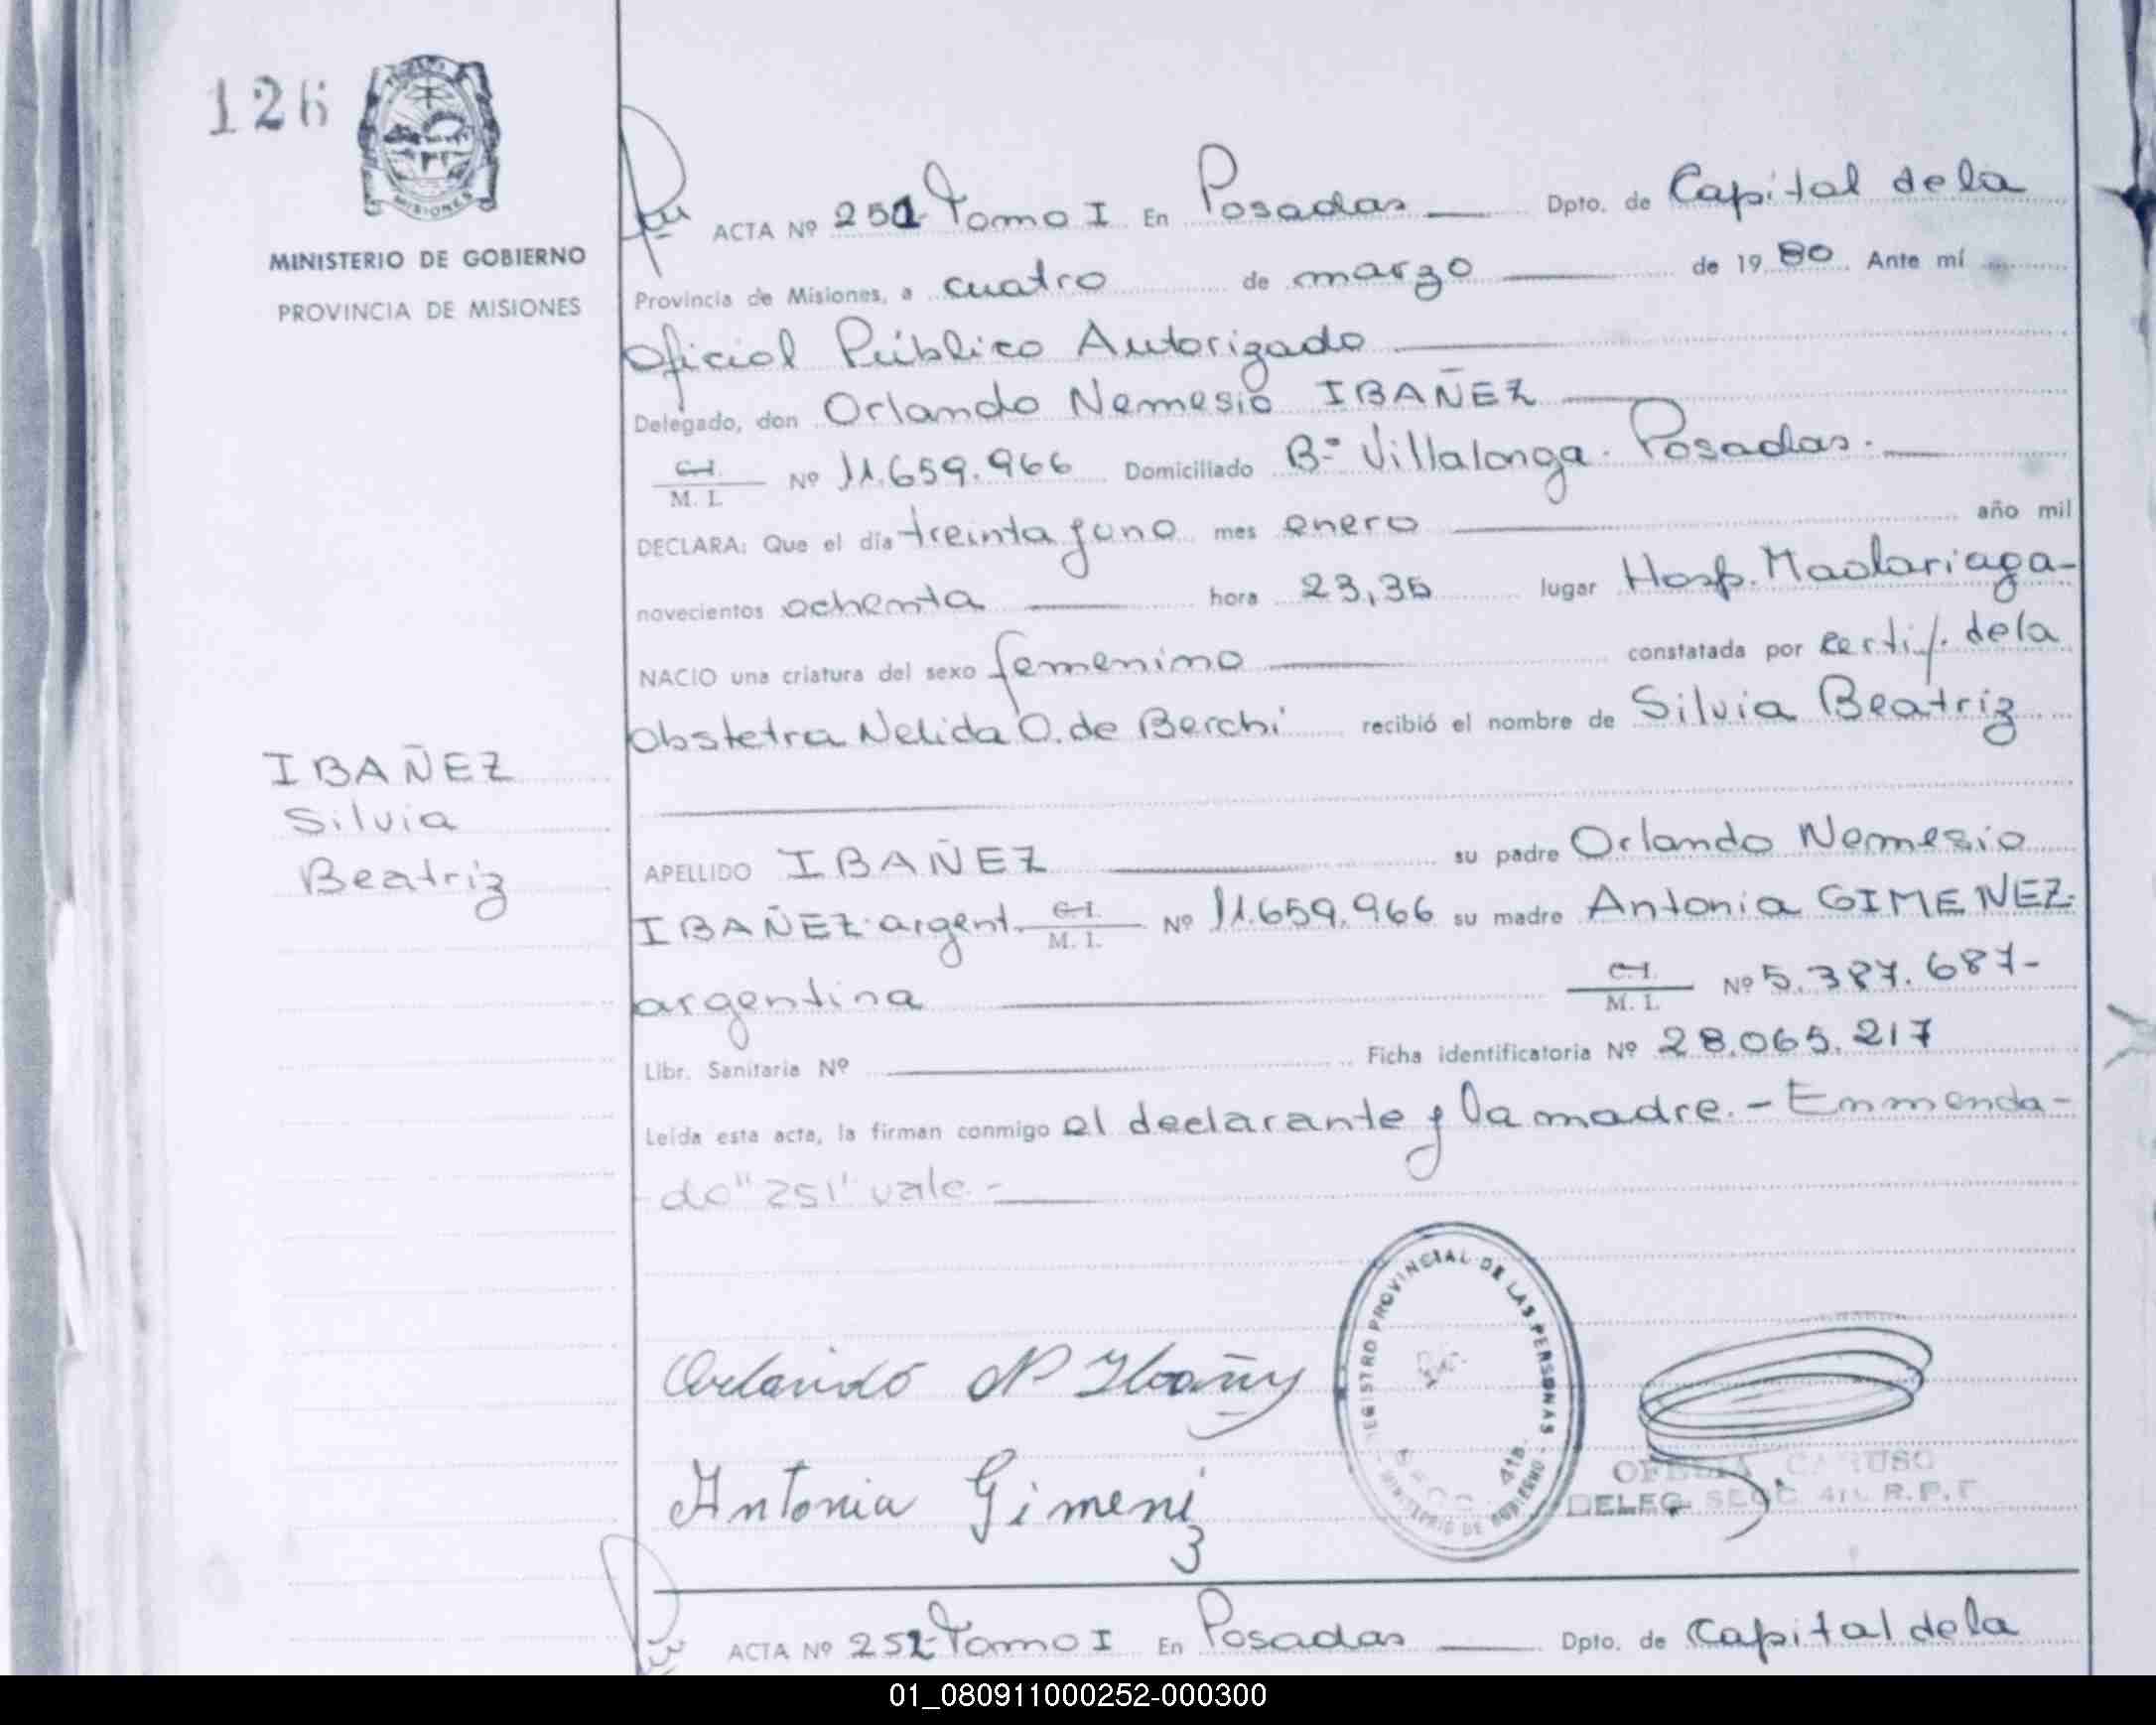 126
MISIONES
MINISTERIO DE GOBIERNO
PROVINCIA DE MISIONES
ACTA Nº 251- Tomo I En Posadas Dpto. de Capital de la
Provincia de Misiones, a cuatro de marzo de 1980. Ante mí
Oficial Público Autorizado
Delegado, don Orlando Nemesio IBAÑEZ
C.I. / M. I. Nº 11.659.966 Domiciliado Bº Villalonga. Posadas.
DECLARA: Que el día treinta y uno mes enero año mil
novecientos ochenta hora 23,35 lugar Hosp. Madariaga-
NACIO una criatura del sexo femenino constatada por certif. de la
Obstetra Nelida O. de Berchi recibió el nombre de Silvia Beatriz
IBAÑEZ
Silvia
Beatriz
APELLIDO IBAÑEZ su padre Orlando Nemesio
IBAÑEZ. argent. C.I. / M. I. Nº 11.659.966 su madre Antonia GIMENEZ.
argentina C.I. / M. I. Nº 5.387.687-
Libr. Sanitaria Nº Ficha identificatoria Nº 28.065.217
Leída esta acta, la firman conmigo el declarante y la madre.- Enmenda-
do "251" vale.-
Orlando N Ibañez
Antonia Gimenez
REGISTRO PROVINCIAL DE LAS PERSONAS
MINISTERIO DE GOBIERNO
4ta.
OFELIA CARUSO
DELEG. SECC 4ta R.P.P.
ACTA Nº 252- Tomo I En Posadas Dpto. de Capital de la
01_080911000252-000300